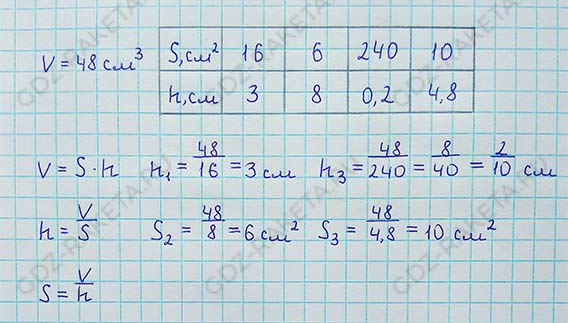 V = 48 см³
S, см² 16 6 240 10
h, см 3 8 0,2 4,8
V = S · h h₁ = 48/16 = 3 см h₃ = 48/240 = 8/40 = 2/10 см
h = V/S S₂ = 48/8 = 6 см² S₃ = 48/4,8 = 10 см²
S = V/h
GDZ-RAKETA.RU